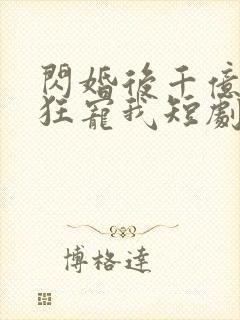 閃婚後千億
狂寵我短劇
博格達